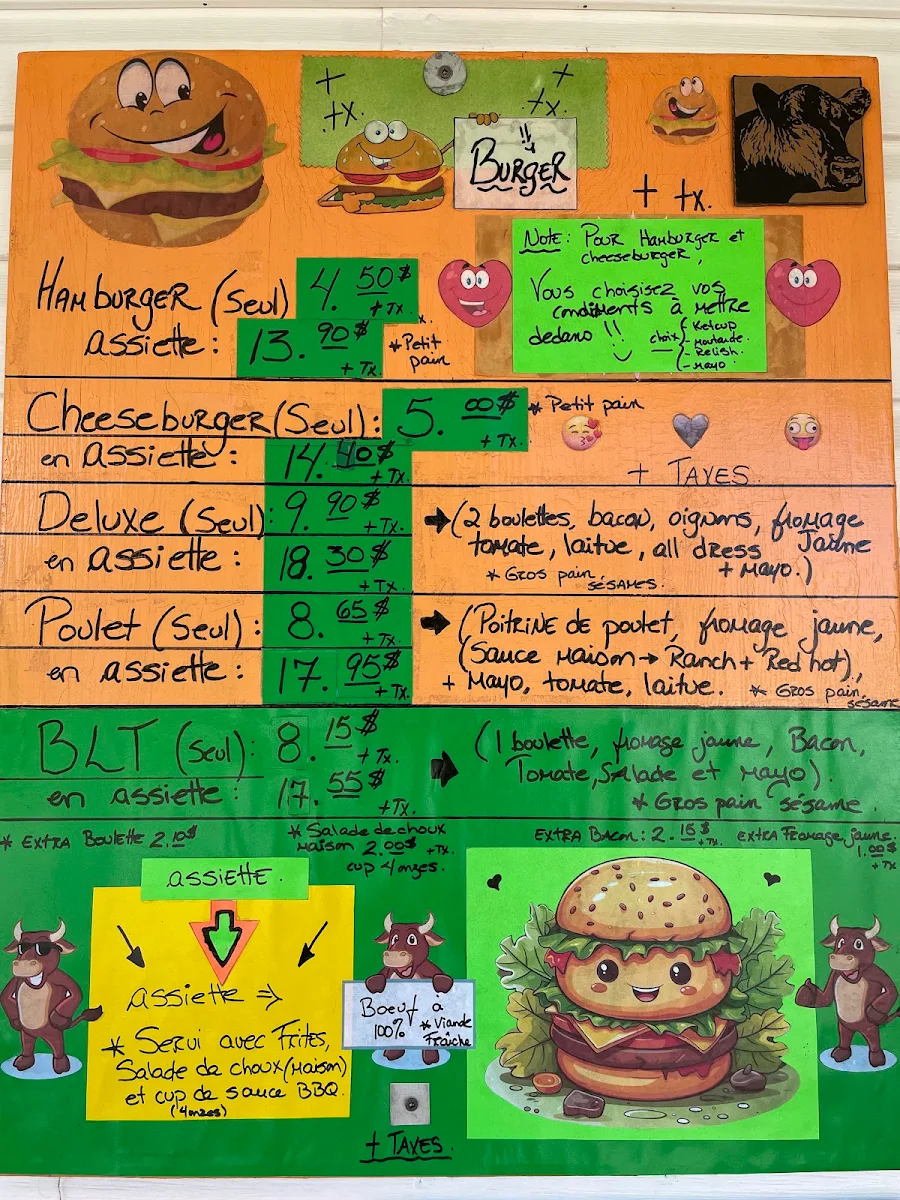 + +
+x. +x.
!!
Burger
+ tx.
Note: Pour Hamburger et
cheeseburger,
Vous choisisez vos
condiments à mettre
dedans !!
choix
- Ketcup
- moutarde.
- Relish.
- mayo
Hamburger (seul) 4.50$
+ Tx.
assiette: 13.90$
+ Tx.
* Petit
pain
Cheeseburger (Seul): 5.00$ * Petit pain
+ Tx.
en assiette: 14.40$
+ Tx.
+ Taxes
Deluxe (seul): 9.90$
+ Tx.
en assiette: 18.30$
+ Tx.
(2 boulettes, bacon, oignons, fromage
Jaune
tomate, laitue, all dress
+ mayo.)
* Gros pain
sésames.
Poulet (seul): 8.65$
+ Tx.
en assiette: 17.95$
+ Tx.
(Poitrine de poulet, fromage jaune,
(Sauce maison → Ranch + Red hot),
+ Mayo, tomate, laitue. * Gros pain
sésame
BLT (seul): 8.15$
+ Tx.
en assiette: 17.55$
+ Tx.
(1 boulette, fromage jaune, Bacon,
Tomate, Salade et mayo).
* Gros pain sésame.
* Extra Boulette 2.10$
* Salade de choux
maison 2.00$ + Tx.
cup 4 onzes.
Extra Bacon: 2.15$
+ Tx.
Extra Fromage jaune.
1.00$
+ Tx
assiette.
assiette ⇒
* Servi avec Frites,
Salade de choux (maison)
et cup de sauce BBQ.
(4 onzes)
Boeuf à
100% * Viande
Fraîche
+ Taxes.